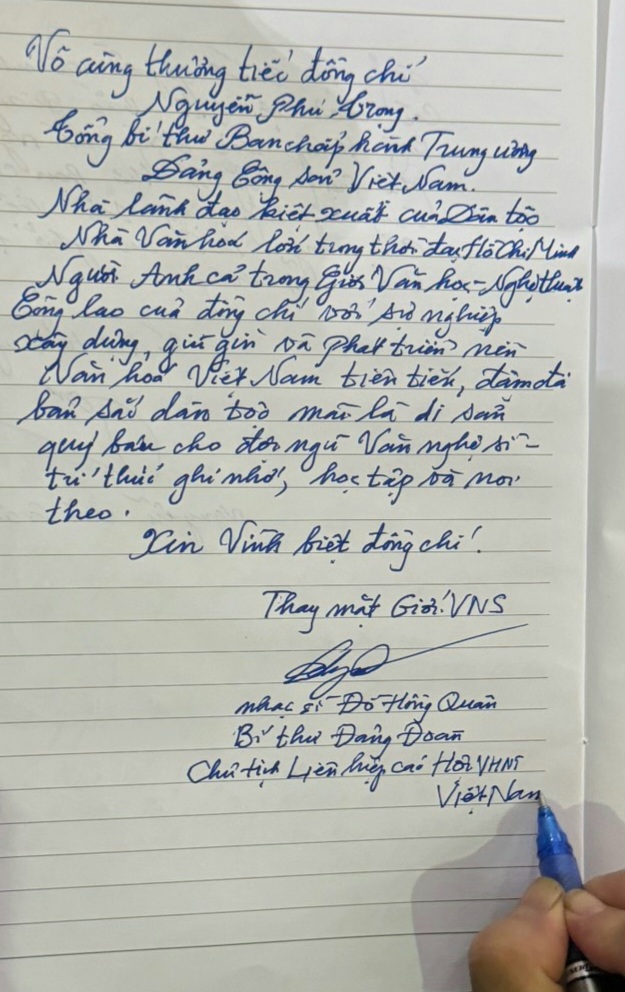 Vô cùng thương tiếc đồng chí
Nguyễn Phú Trọng.
Tổng bí thư Ban chấp hành Trung ương
Đảng Cộng sản Việt Nam.
Nhà lãnh đạo kiệt xuất của Dân tộc
Nhà Văn hóa lớn trong thời đại Hồ Chí Minh
Người Anh cả trong Giới Văn học - Nghệ thuật
Công lao của đồng chí với sự nghiệp
xây dựng, giữ gìn và phát triển nền
Văn hóa Việt Nam tiên tiến, đậm đà
bản sắc dân tộc mãi là di sản
quý báu cho đội ngũ Văn nghệ sĩ -
trí thức ghi nhớ, học tập và noi
theo.
Xin Vĩnh biệt đồng chí!
Thay mặt Giới VNS
nhạc sĩ Đỗ Hồng Quân
Bí thư Đảng Đoàn
Chủ tịch Liên hiệp các Hội VHNT
Việt Nam